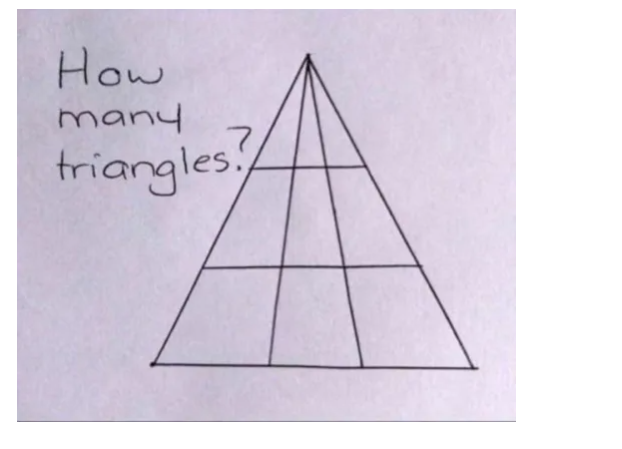 How
many
triangles?